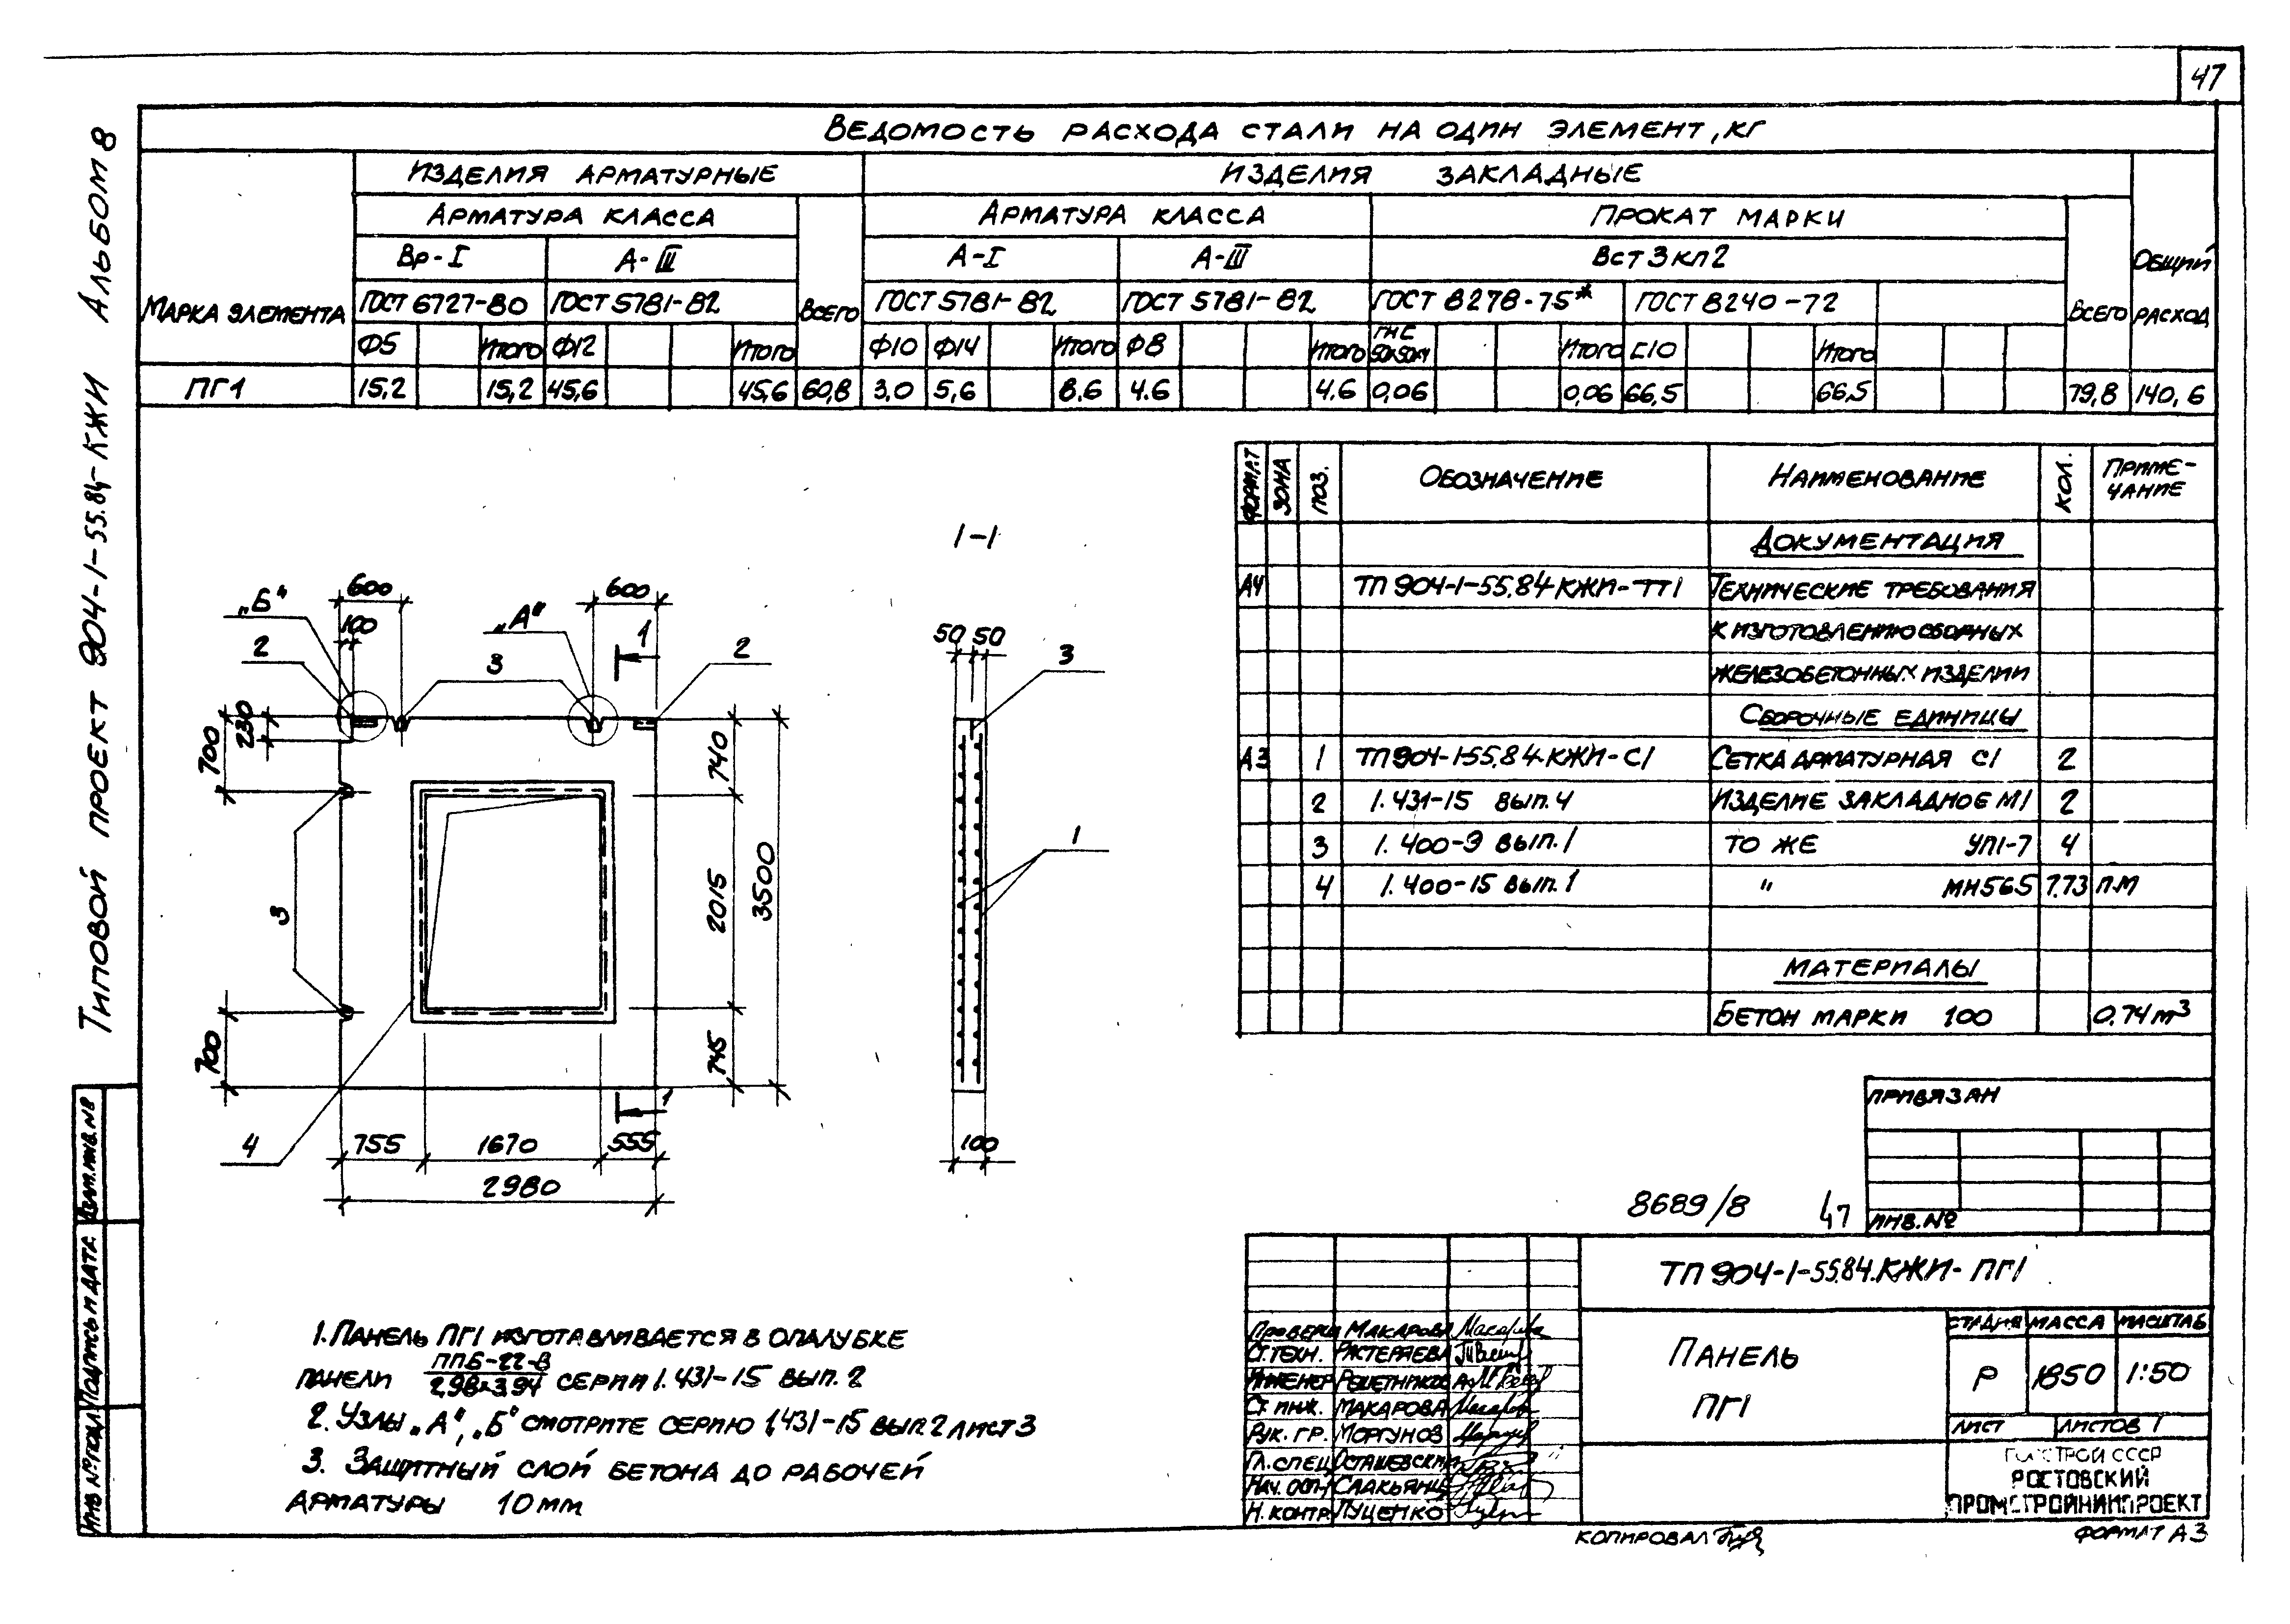 47
Типовой проект 904-1-55.84-КЖИ Альбом 8
Ведомость расхода стали на один элемент, кг
Марка элемента
Изделия арматурные
Изделия закладные
Общий расход
Арматура класса
Всего
Арматура класса
Прокат марки
Всего
Вр-I
А-III
А-I
А-III
ВСт3кп2
ГОСТ 6727-80
ГОСТ 5781-82
ГОСТ 5781-82
ГОСТ 5781-82
ГОСТ 8278-75*
ГОСТ 8240-72
Ф5 Итого Ф12 Итого Ф10 Ф14 Итого Ф8 Итого ГНС 50х50х4 Итого С10 Итого
ПГ1 15,2 15,2 45,6 45,6 60,8 3,0 5,6 8.6 4.6 4.6 0,06 0,06 66,5 66,5 79,8 140,6
Формат Зона Поз. Обозначение Наименование Кол. Приме-
чание
Документация
А4 ТП 904-1-55.84-КЖИ-ТТ1 Технические требования
к изготовлению сборных
железобетонных изделии
Сборочные единицы
А3 1 ТП904-1-55.84.КЖИ-С1 Сетка арматурная С1 2
2 1.431-15 вып.4 Изделие закладное М1 2
3 1.400-9 вып.1 то же УП1-7 4
4 1.400-15 вып.1 " МН565 7.73 п.м
Материалы
Бетон марки 100 0.74м³
1-1
„Б“
600
100
2
„А“
600
1
3
2
700
230
740
3
2015
3500
700
745
1
4
755
1670
555
2980
50 50
3
1
100
1. Панель ПГ1 изготавливается в опалубке
панели ППБ-22-В / 2,98х3.94 серии 1.431-15 вып. 2
2. Узлы „А“, „Б“ смотрите серию 1,431-15 вып.2 лист 3
3. Защитный слой бетона до рабочей
арматуры 10мм
Привязан
Инв.№
8689/8 47
ТП 904-1-55.84.КЖИ-ПГ1
Панель
ПГ1
Стадия Масса Масштаб
Р 1850 1:50
Лист Листов 1
Госстрой СССР
РОСТОВСКИЙ
ПРОМСТРОЙНИИПРОЕКТ
Проверил Макарова
Ст.техн. Растеряева
Инженер Решетников
Ст. инж. Макарова
Рук. гр. Моргунов
Гл.спец Осташевский
Нач. отд Саакьянц
Н. контр. Луценко
Копировал
Формат А3
Взам.инв.№
Подпись и дата
Инв № подл